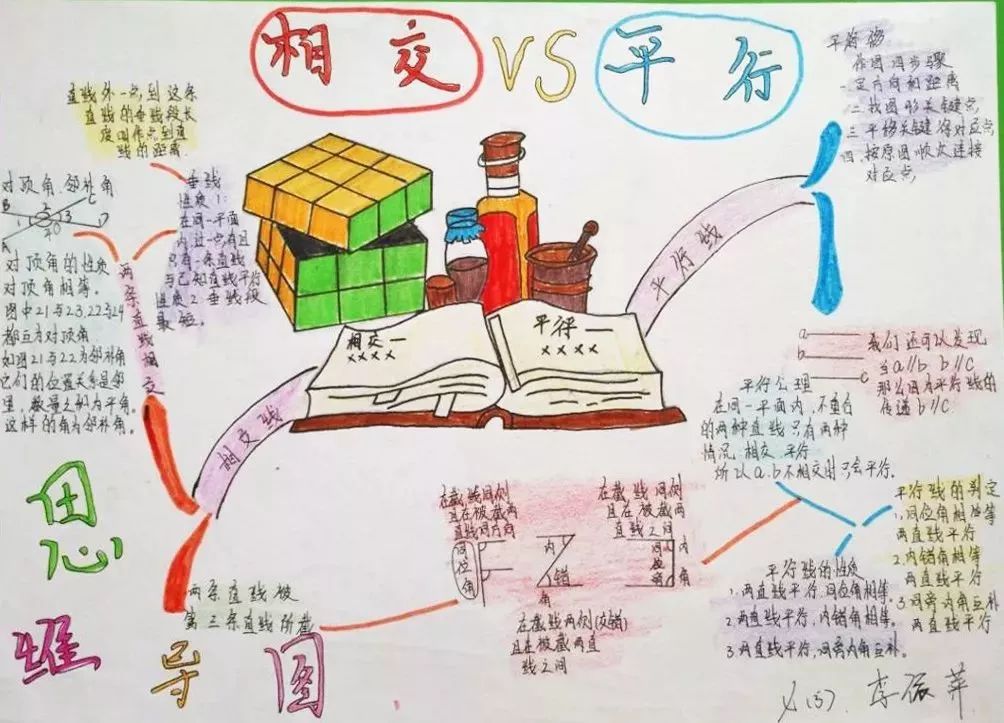 相交 VS 平行
直线外一点,到这条
直线的垂线段长
度叫作点到直
线的距离.
垂线
性质1:
在同一平面
内过一点有且
只有一条直线
与已知直线平行
性质2.垂线段
最短.
对顶角.邻补角
B
2
C
1
3
D
A
对顶角的性质
对顶角相等。
图中21与23,22与24
都互为对顶角
如图21与22为邻补角
它们的位置关系是邻
这样的角为邻补角。
两条直线相交
相交线
相交一
××××
平行一
××××
平行线
平移
作图四步骤
一定方向和距离
二找图形关键点
三平移关键得对应点
四.按原图顺次连接
对应点,
a
b
c
我们还可以发现
当a∥b b∥c
那么因为平行线的
传递b∥c.
平行公理
在同一平面内,不重合
的两种直线只有两种
情况 相交 平行
所以a.b不相交时只会平行.
平行线的判定
1,同位角相等
两直线平行
2.内错角相等
两直线平行
3.同旁内角互补
两直线平行
平行线的性质
1.两直线平行.同位角相等.
2.两直线平行,内错角相等,
3.两直线平行,同旁内角互补。
在截线同侧
且在被截两
直线同方向
同位角
内错角
在截线两侧(交错)
且在被截两直
线之间
在截线同侧
且在被截两
直线之间
内角
两条直线被
第三条直线所截
思维导图
李振萍